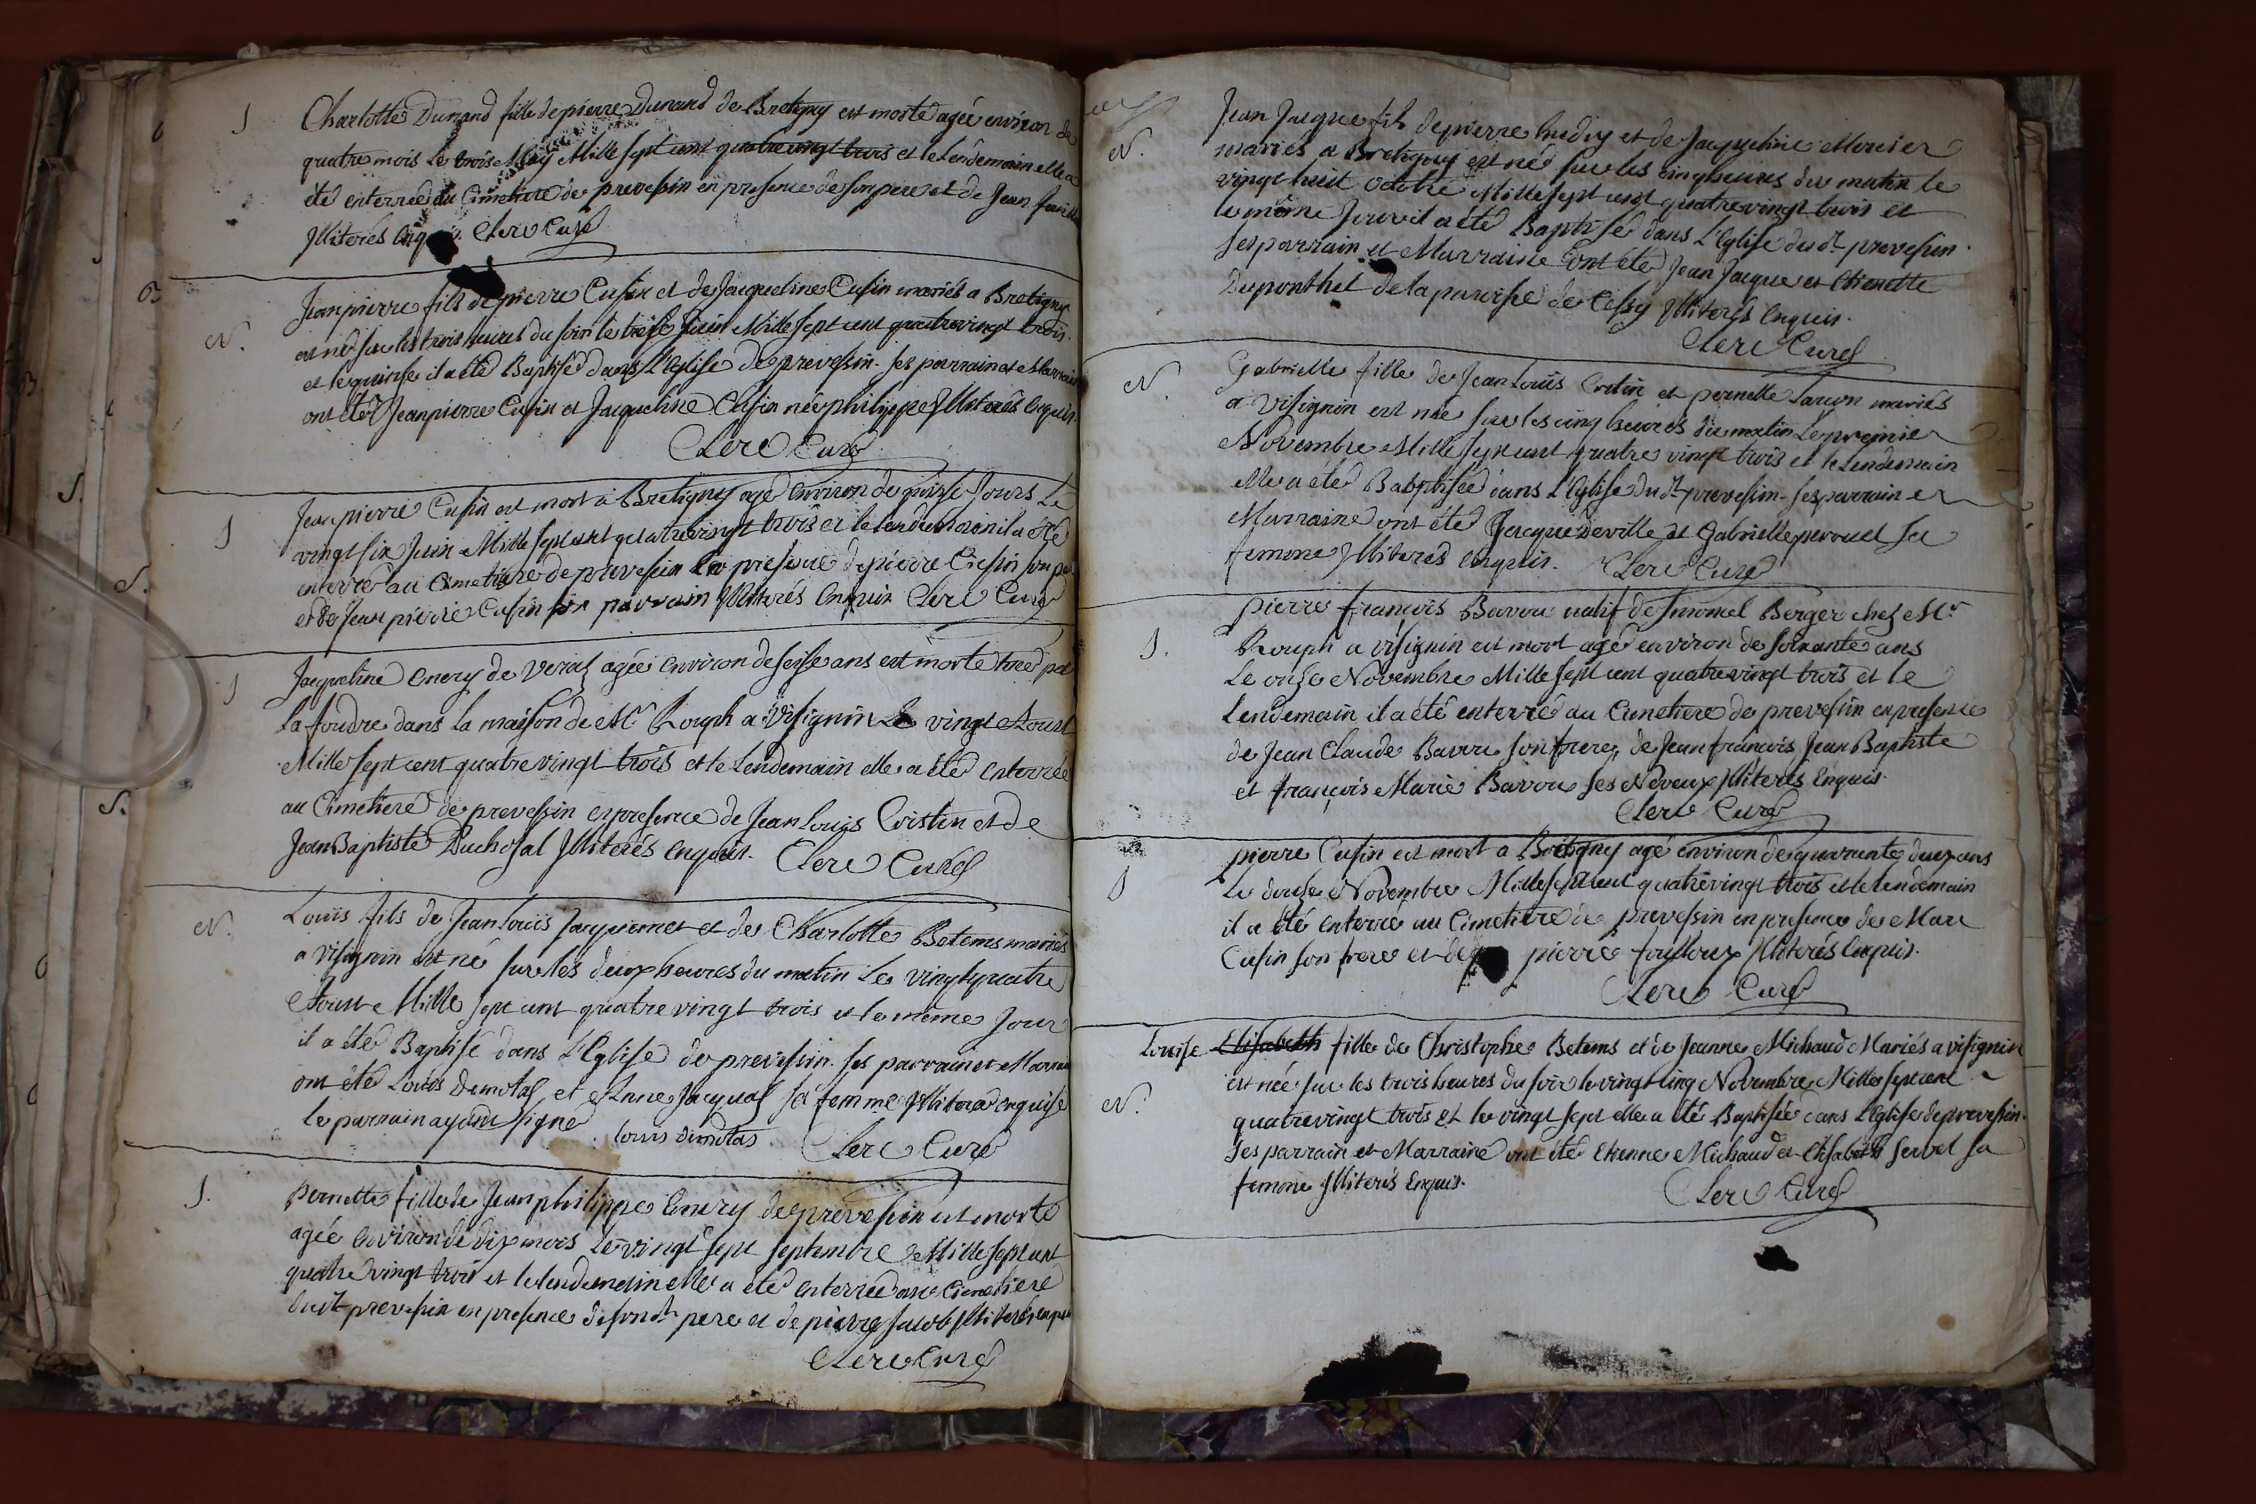 S
Charlotte Dunand fille de pierre Dunand de Bretigny est morte agée environ de
quatre mois le trois May Mille sept cent quatre vingt trois et le Lendemain elle a
été enterrée au Cimetiere de prevessin en presence de son pere et de Jean
Illiterés Enquis. Clerc Curé
N.
Jean pierre fils de pierre Cusin et de Jacqueline Cusin mariés a Bretigny
est né sur les trois heures du soir le treise Juin Mille sept cent quatre vingt trois.
et le quinse il a été Baptisé dans L'Eglise de prevessin. ses parrain et Marraine
ont été Jean pierre Cusin et Jacqueline Cusin née philippe Illiterés Enquis.
Clerc Curé
S
Jean pierre Cusin est mort a Bretigny agé environ de quinse Jours Le
vingt six Juin Mille sept cent quatre vingt trois et le lendemain il a été
enterré au Cimetiere de prevessin En presence de pierre Cusin son pere
et de Jean pierre Cusin son parrain Illiterés Enquis Clerc Curé
S
Jacqueline Emery de Veraz agée Environ de seise ans est morte tuée par
la foudre dans la maison de Mr. Rouph a Visignin Le vingt Aoust
Mille sept cent quatre vingt trois et le Lendemain elle a été enterrée
au Cimetiere de prevessin en presence de Jean Louis Cristin et de
Jean Baptiste Duchosal Illiterés enquis. Clerc Curé
N.
Louis fils de Jean Louis Jacquemet et de Charlotte Betems mariés
a Visignin est né sur les deux heures du matin Le vingt quatre
Aoust Mille sept cent quatre vingt trois et le même Jour
il a été Baptisé dans L'Eglise de prevessin. ses parrain et Marraine
ont été Louis Demolas et Anne Jacquas sa femme Illiterée enquise
le parrain ayant signé. louis dimolas Clerc Curé
S.
Pernette fille de Jean philippe Emery de prevessin est morte
agée Environ de dix mois Le vingt sept septembre Mille sept cent
quatre vingt trois et le lendemain elle a été enterrée au Cimetiere
dudt. prevessin en presence de son dt. pere et de pierre Jacob Illiterés enquis
Clerc Curé
N.
Jean Jacque fils de pierre hudry et de Jacqueline Mercier
mariés a Bretigny est né sur les cinq heures du matin le
vingt huit octobre Mille sept cent quatre vingt trois et
le même Jour il a été Baptisé dans L'Eglise dudt. prevessin.
ses parrain et Marraine ont été Jean Jacque et Etienette
Duponthet de la paroisse de Cessy Illiterés Enquis.
Clerc Curé
N.
Gabrielle fille de Jean Louis Cristin et pernette Sauvon mariés
a Visignin est née sur les cinq heures du matin Le premier
Novembre Mille sept cent quatre vingt trois et le Lendemain
elle a été Babptisée dans L'Eglise dudt. prevessin. ses parrain et
Marraine ont été Jacque deville et Gabrielle perroud sa
femme Illiterés Enquis. Clerc Curé
S.
pierre françois Bavou natif de Berger chez Mr.
Rouph a visignin est mort agé environ de soixante ans
Le onze Novembre Mille sept cent quatre vingt trois et le
Lendemain il a été enterré au Cimetiere de prevessin en presence
de Jean Claude Bavou son frere, de Jean françois Jean Baptiste
et françois Marie Bavou ses Neveux Illiterés Enquis.
Clerc Curé
S
pierre Cusin est mort a Bretigny agé environ de quarante deux ans
Le douse Novembre Mille sept cent quatre vingt trois et le lendemain
il a été enterré au Cimetiere de prevessin en presence de Marc
Cusin son frere et de pierre foulloux Illiterés Enquis.
Clerc Curé
N.
Louise Elisabeth fille de Christophe Betems et de Jeanne Michaud Mariés a visignin
est née sur les trois heures du soir le vingt cinq Novembre Mille sept cent
quatre vingt trois et le vingt sept elle a été Baptisée dans L'Eglise de prevessin.
ses parrain et Marraine ont été Etienne Michaud et Elisabeth servet sa
femme Illiterés Enquis.
Clerc Curé